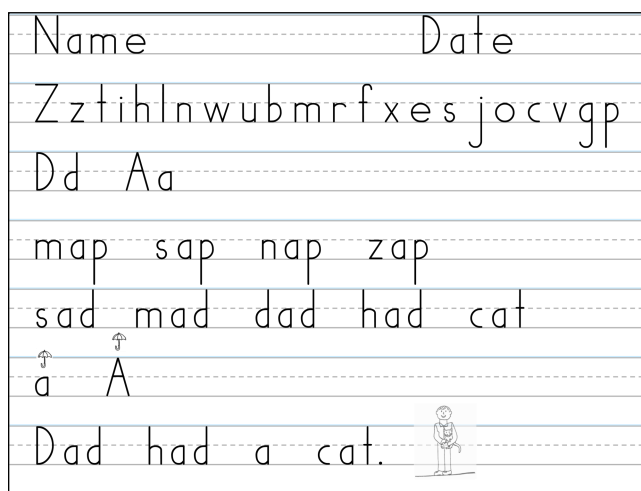 Name Date
Z z t i h l n w u b m r f x e s j o c v g p
D d A a
map sap nap zap
sad mad dad had cat
a A
Dad had a cat.